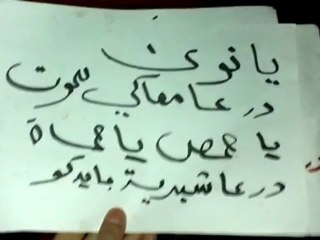 يا نوى
درعا معاكي للموت
يا حمص يا حماة
درعا شبرية بايدكو